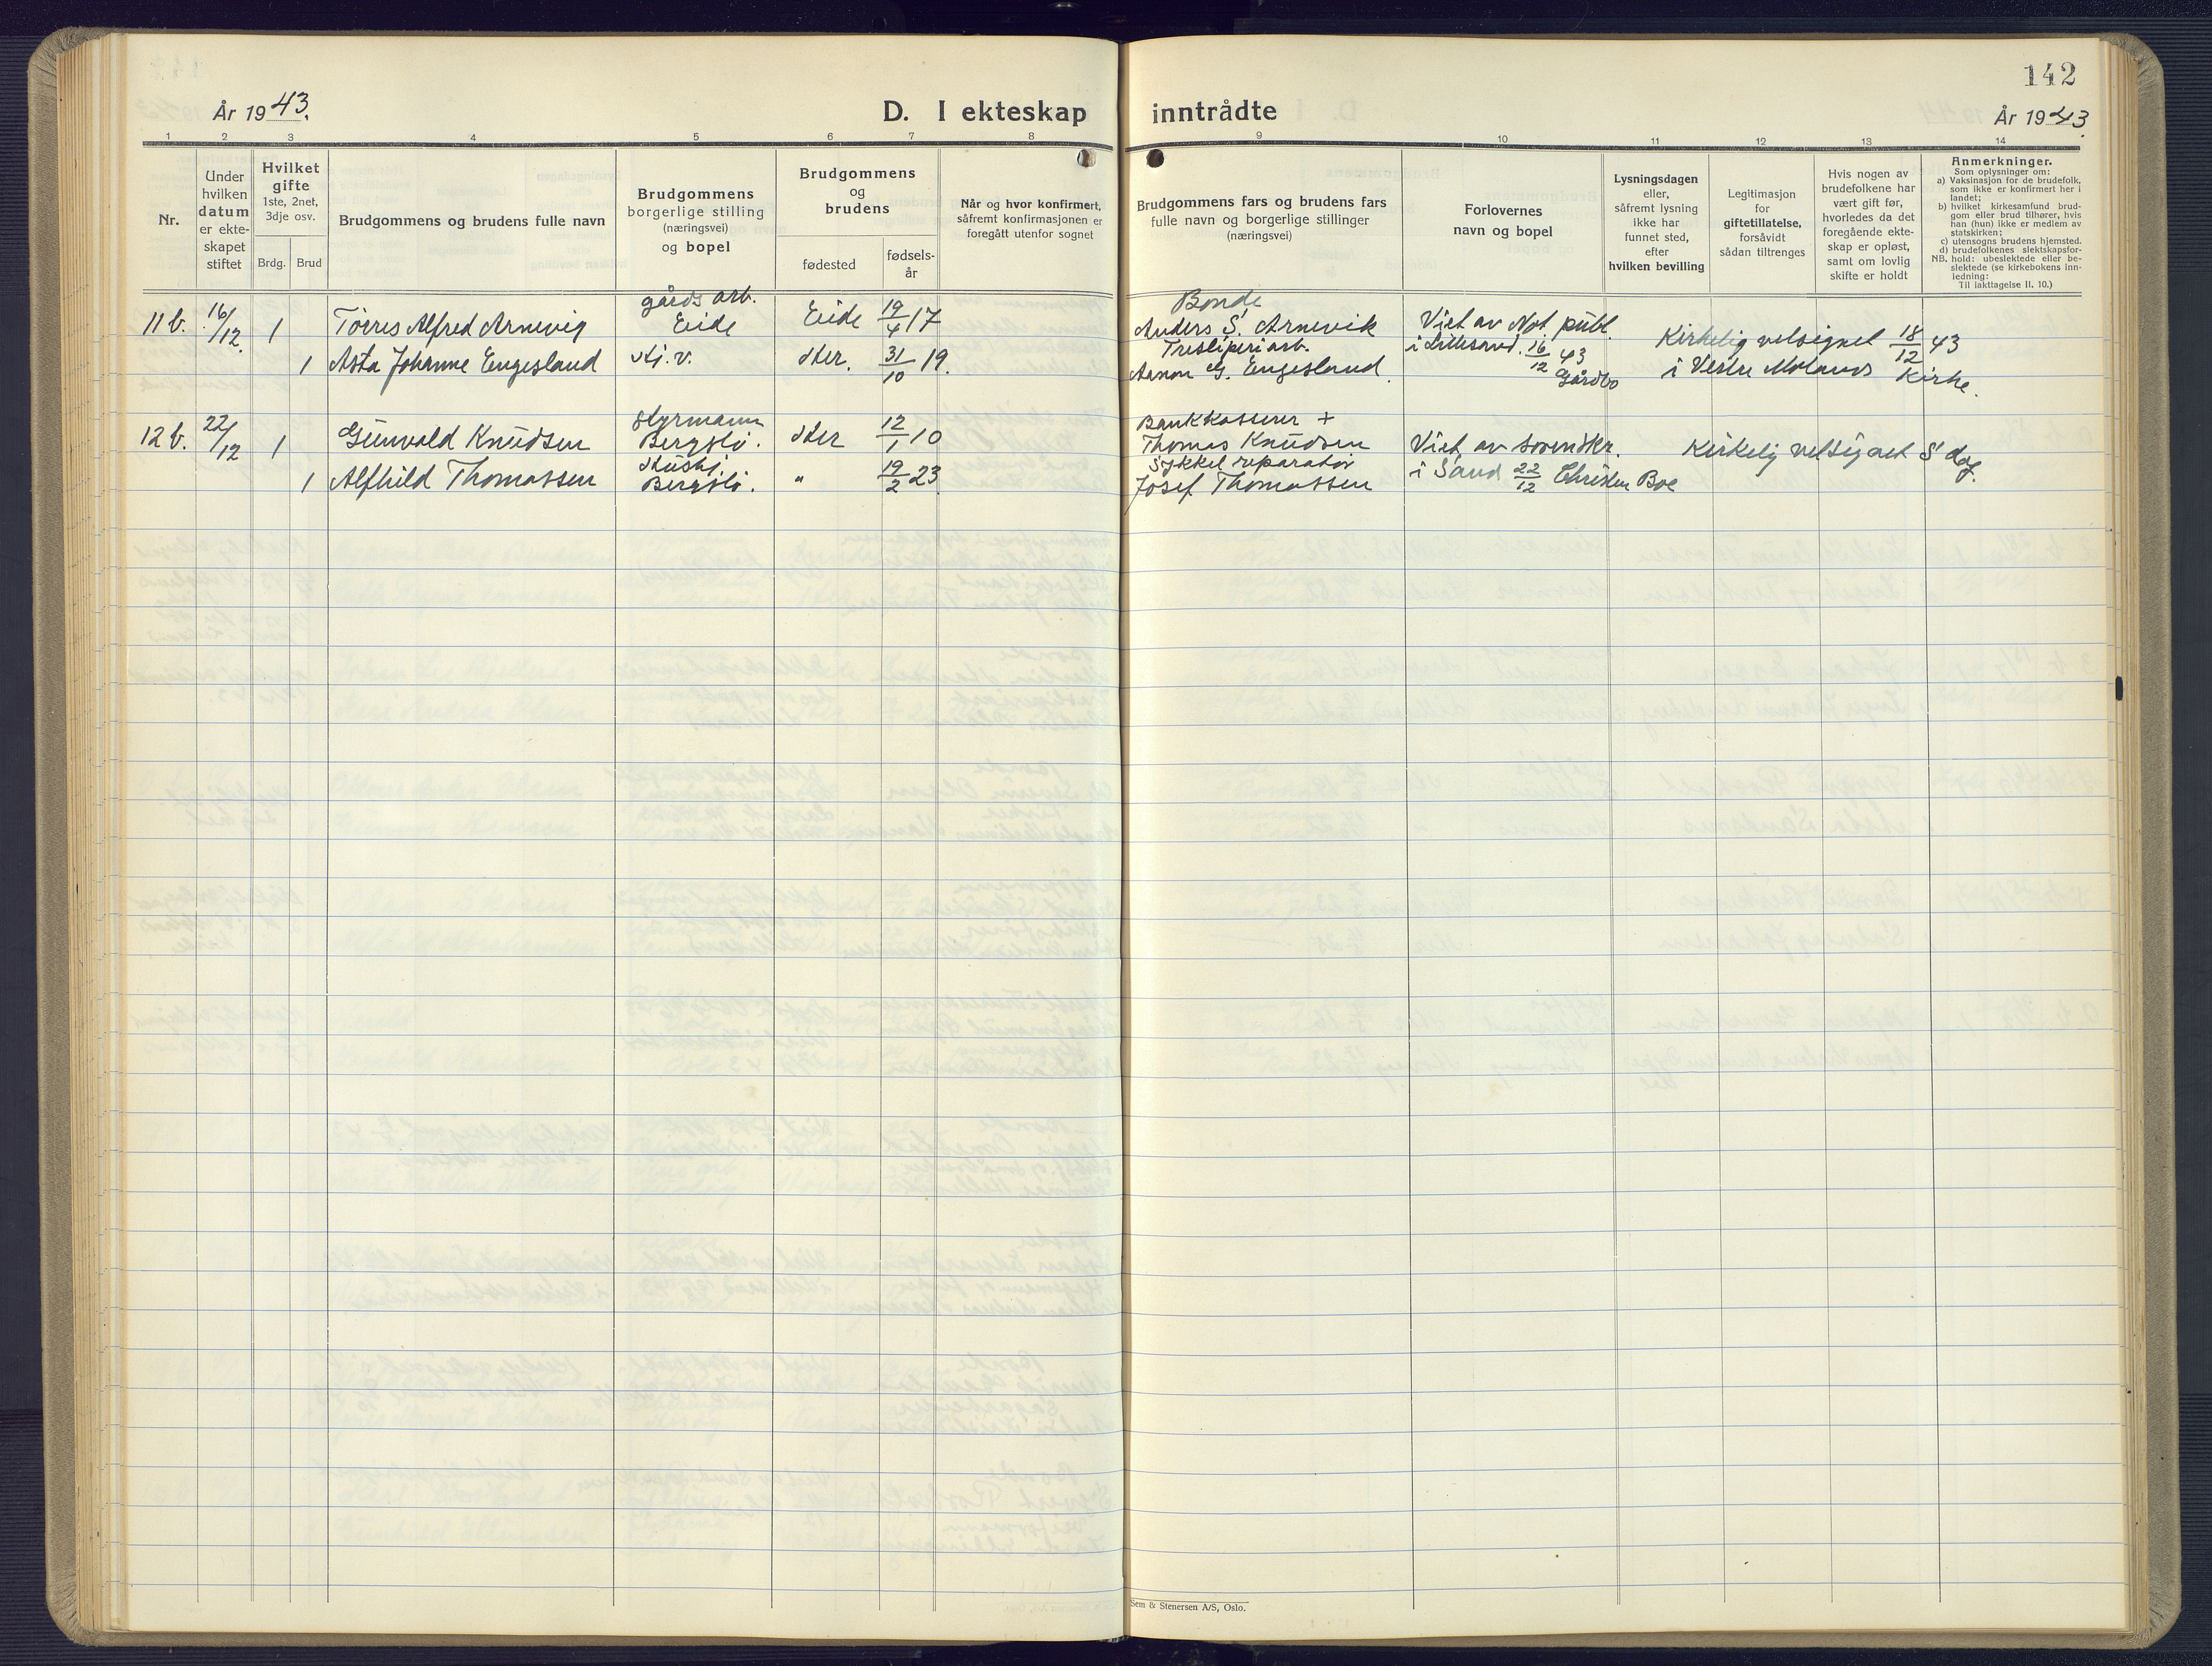 142
År 1943.
D. I ekteskap inntrådte
År 1943.
1 2 3 4 5 6 7 8 9 10 11 12 13 14
Nr.
Under
hvilken
datum
er ekte-
skapet
stiftet
Hvilket
gifte
1ste, 2net,
3dje osv.
Brdg. Brud
Brudgommens og brudens fulle navn
Brudgommens
borgerlige stilling
(næringsvei)
og bopel
Brudgommens
og
brudens
fødested
fødsels-
år
Når og hvor konfirmert,
såfremt konfirmasjonen er
foregått utenfor sognet
Brudgommens fars og brudens fars
fulle navn og borgerlige stillinger
(næringsvei)
Forlovernes
navn og bopel
Lysningsdagen
eller,
såfremt lysning
ikke har
funnet sted,
efter
hvilken bevilling
Legitimasjon
for
giftetillatelse,
forsåvidt
sådan tiltrenges
Hvis nogen av
brudefolkene har
vært gift før,
hvorledes da det
foregående ekte-
skap er opløst,
samt om lovlig
skifte er holdt
Anmerkninger.
Som oplysninger om:
a) Vaksinasjon for de brudefolk,
som ikke er konfirmert her i
landet;
b) hvilket kirkesamfund brud-
gom eller brud tilhører, hvis
han (hun) ikke er medlem av
statskirken;
c) utensogns brudens hjemsted.
d) brudefolkenes slektskapsfor-
NB. hold: ubeslektede eller be-
slektede (se kirkebokens inn-
ledning:
Til iakttagelse II. 10.)
gårds arb.
11 b. 16/12. 1 Tørres Alfred Arnevig Eide Eide 19/4 17
1 Asta Johanne Engesland stj. v. ster. 31/10 19.
Bonde
Anders S. Arnevik
Tresliperiarb.
Aanon G. Engesland.
Viet av Not. publ.
i Lillesand. 16/12 43
Gårdbo
Kirkelig velsignet 18/12 43
i Vestre Molands Kirke.
styrmann
12 b. 22/12 1 Gunvald Knudsen Bergslø. ster 12/1 10
hustj.
1 Alfhild Thomassen Bergslø. " 19/2 23
Bankkasserer +
Thomas Knudsen
Sykkel reparatør
Josef Thomassen
Viet av sorenskr.
i Sand 22/12 Christen Boe
Kirkelig velsignet S. dag.
Sem & Stenersen A/S, Oslo.